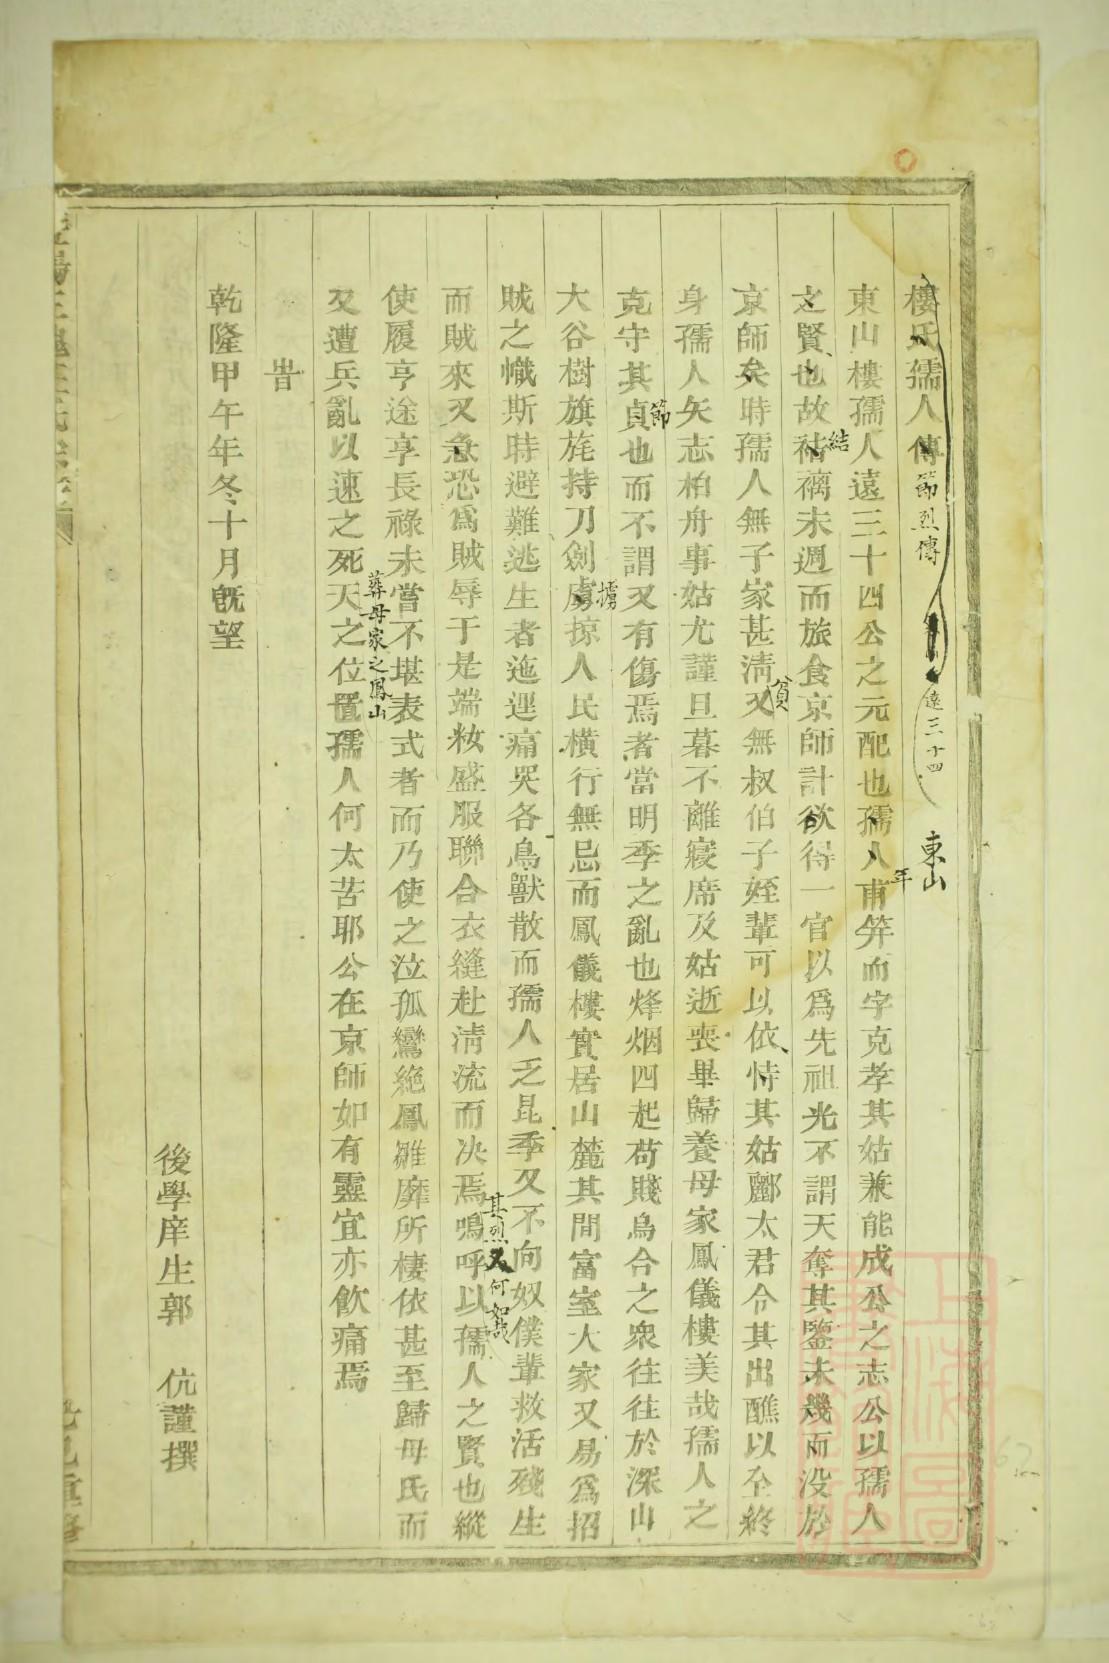 樓氏孺人傳 節烈傳 遠三十四 東山
東山樓孺人遠三十四公之元配也孺人甫笄而字克孝其姑兼能成公之志公以孺人
年
之賢也故褵未週而旅食京師計欲得一官以爲先祖光不謂天奪其鑒未幾而没於
結
京師矣時孺人無子家甚淸又無叔伯子姪輩可以依恃其姑酈太君令其出醮以至終
貧
身孺人矢志柏舟事姑尤謹旦暮不離寢席及姑逝喪畢歸養母家鳳儀樓美哉孺人之
克守其貞也而不謂又有傷焉者當明季之亂也烽烟四起苟賤烏合之衆往往於深山
節
大谷樹旗旄持刀劍虜掠人民橫行無忌而鳳儀樓實居山麓其間富室大家又易爲招
擄
賊之幟斯時避難逃生者迤邐痛哭各鳥獸散而孺人之昆季又不向奴僕輩救活殘生
而賊來又急恐爲賊辱于是端妝盛服聯合衣縫赴淸流而决焉嗚呼以孺人之賢也縱
其烈又何如哉
使履亨途享長祿未嘗不堪表式者而乃使之泣孤鸞絶鳳雛靡所棲依甚至歸母氏而
又遭兵亂以速之死天之位置孺人何太苦耶公在京師如有靈宜亦飮痛焉
葬母家之鳳山
旹
乾隆甲午年冬十月旣望
後學庠生郭 伉謹撰
重修
上海圖